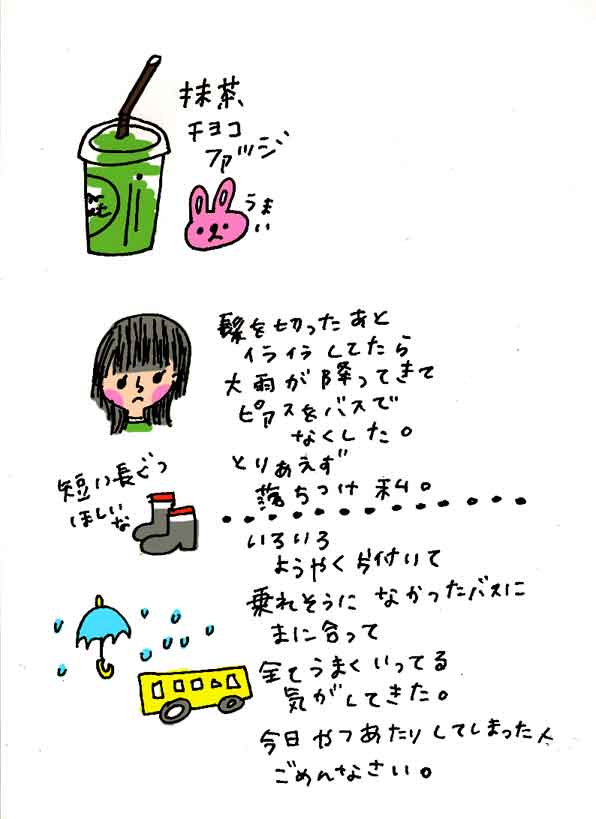 抹茶、
チョコ
ファッジ
うま
い
髪を切ったあと
イライラしてたら
大雨が降ってきて
ピアスをバスで
なくした。
とりあえず
落ちつけ私。
短い長ぐつ
ほしい
な
いろいろ
ようやく片付いて
乗れそうになかったバスに
まに合って
全てうまくいってる
気がしてきた。
今日やつあたりしてしまった人
ごめんなさい。